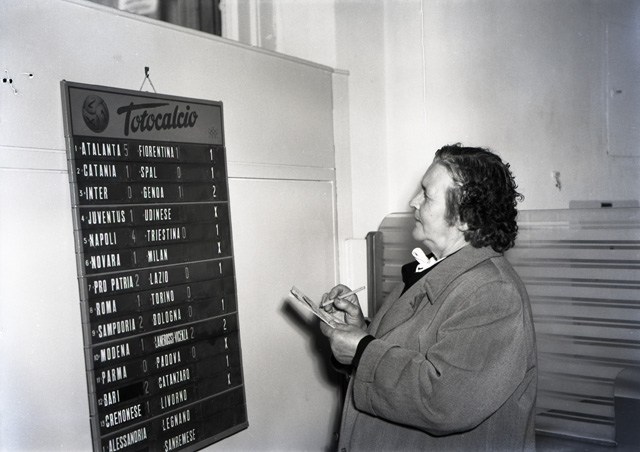 Totocalcio
1 ATALANTA 5 FIORENTINA 1 1
2 CATANIA 1 SPAL 0 1
3 INTER 0 GENOA 1 2
4 JUVENTUS 1 UDINESE X
5 NAPOLI 4 TRIESTINA 0 1
6 NOVARA 1 MILAN X
7 PRO PATRIA 2 LAZIO 0 1
8 ROMA TORINO 0 1
9 SAMPDORIA 2 BOLOGNA 0 1
MODENA 1 LANEROSSI-VICENZA 2 2
PARMA 0 PADOVA 0 X
BARI 2 CATANZARO 1
CREMONESE LIVORNO X
ALESSANDRIA LEGNANO
SANREMESE